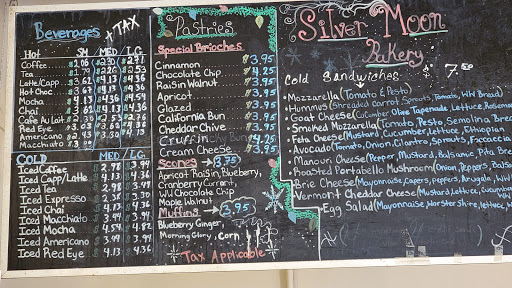 Beverages + TAX
Hot SM / MED / LG
Coffee
Tea
Latte/Capp
Hot Choc
Mocha 4.13 4.36 4.54
Chai
Cafe Au Lait
Red Eye
Americano
Macchiato
COLD MED LG
Iced Coffee 2.98 3.94
Iced Capp/Latte 4.13 4.36
Iced Tea 2.98 3.94
Iced Expresso
Iced Chai 4.13 4.36
Iced Macchiato 3.94
Iced Mocha 4.54 4.82
Iced Americano 3.44 3.94
Iced Red Eye 4.13 4.36
Pastries
Special Brioches
Cinnamon $3.95
Chocolate Chip $4.25
Raisin Walnut $3.95
Apricot $3.95
Glazed $3.95
California Bun $3.95
Cheddar Chive $3.95
Cruffin $4.95
Cream Cheese $3.95
Scones $3.75
Apricot Raisin, Blueberry,
Cranberry Currant,
W/W Chocolate Chip
Maple Walnut
Muffins $3.95
Blueberry Ginger,
Morning Glory, Corn
Tax Applicable
Silver Moon
Bakery
Cold Sandwiches $7.50
• Mozzarella (Tomato & Pesto)
• Hummus (Shredded Carrot, Sprouts, Tomato, WW Bread)
• Goat Cheese (Cucumber, Olive Tapenade, Lettuce, Rosemary
• Smoked Mozzarella (Tomato, Pesto, Semolina Bread
• Feta Cheese (Mustard, Cucumber, Lettuce, Ethiopian
• Avocado (Tomato, Onion, Cilantro, Sprouts, Focaccia
• Manouri Cheese (Pepper, Mustard, Balsamic, Pita Bread
• Roasted Portabello Mushroom (Onion, Pepper, Balsamic
• Brie Cheese (Mayonnaise, Capers, Pepper, Arugula, WW
• Vermont Cheddar Cheese (Mustard, Lettuce, Cucumber
WW
• Egg Salad (Mayonnaise, Worstershire, lettuce,